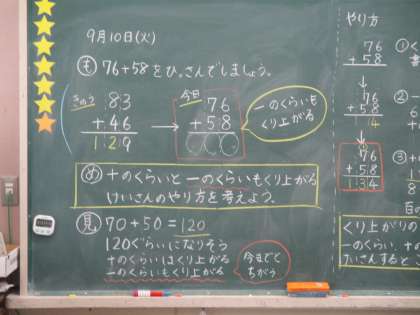 9月10日(火)
も 76+58をひっさんでしましょう。
きのう 83
+46
129
今日 76
+58
一のくらいも
くり上がる
め 十のくらいと一のくらいもくり上がる
けいさんのやり方を考えよう。
見 70+50=120
120ぐらいになりそう
十のくらいはくり上がる
一のくらいもくり上がる
今までと
ちがう
やり方
76
+58
①
76
+58
4
②一
76
+58
134
③十
くり上がりの
一のくらい、十